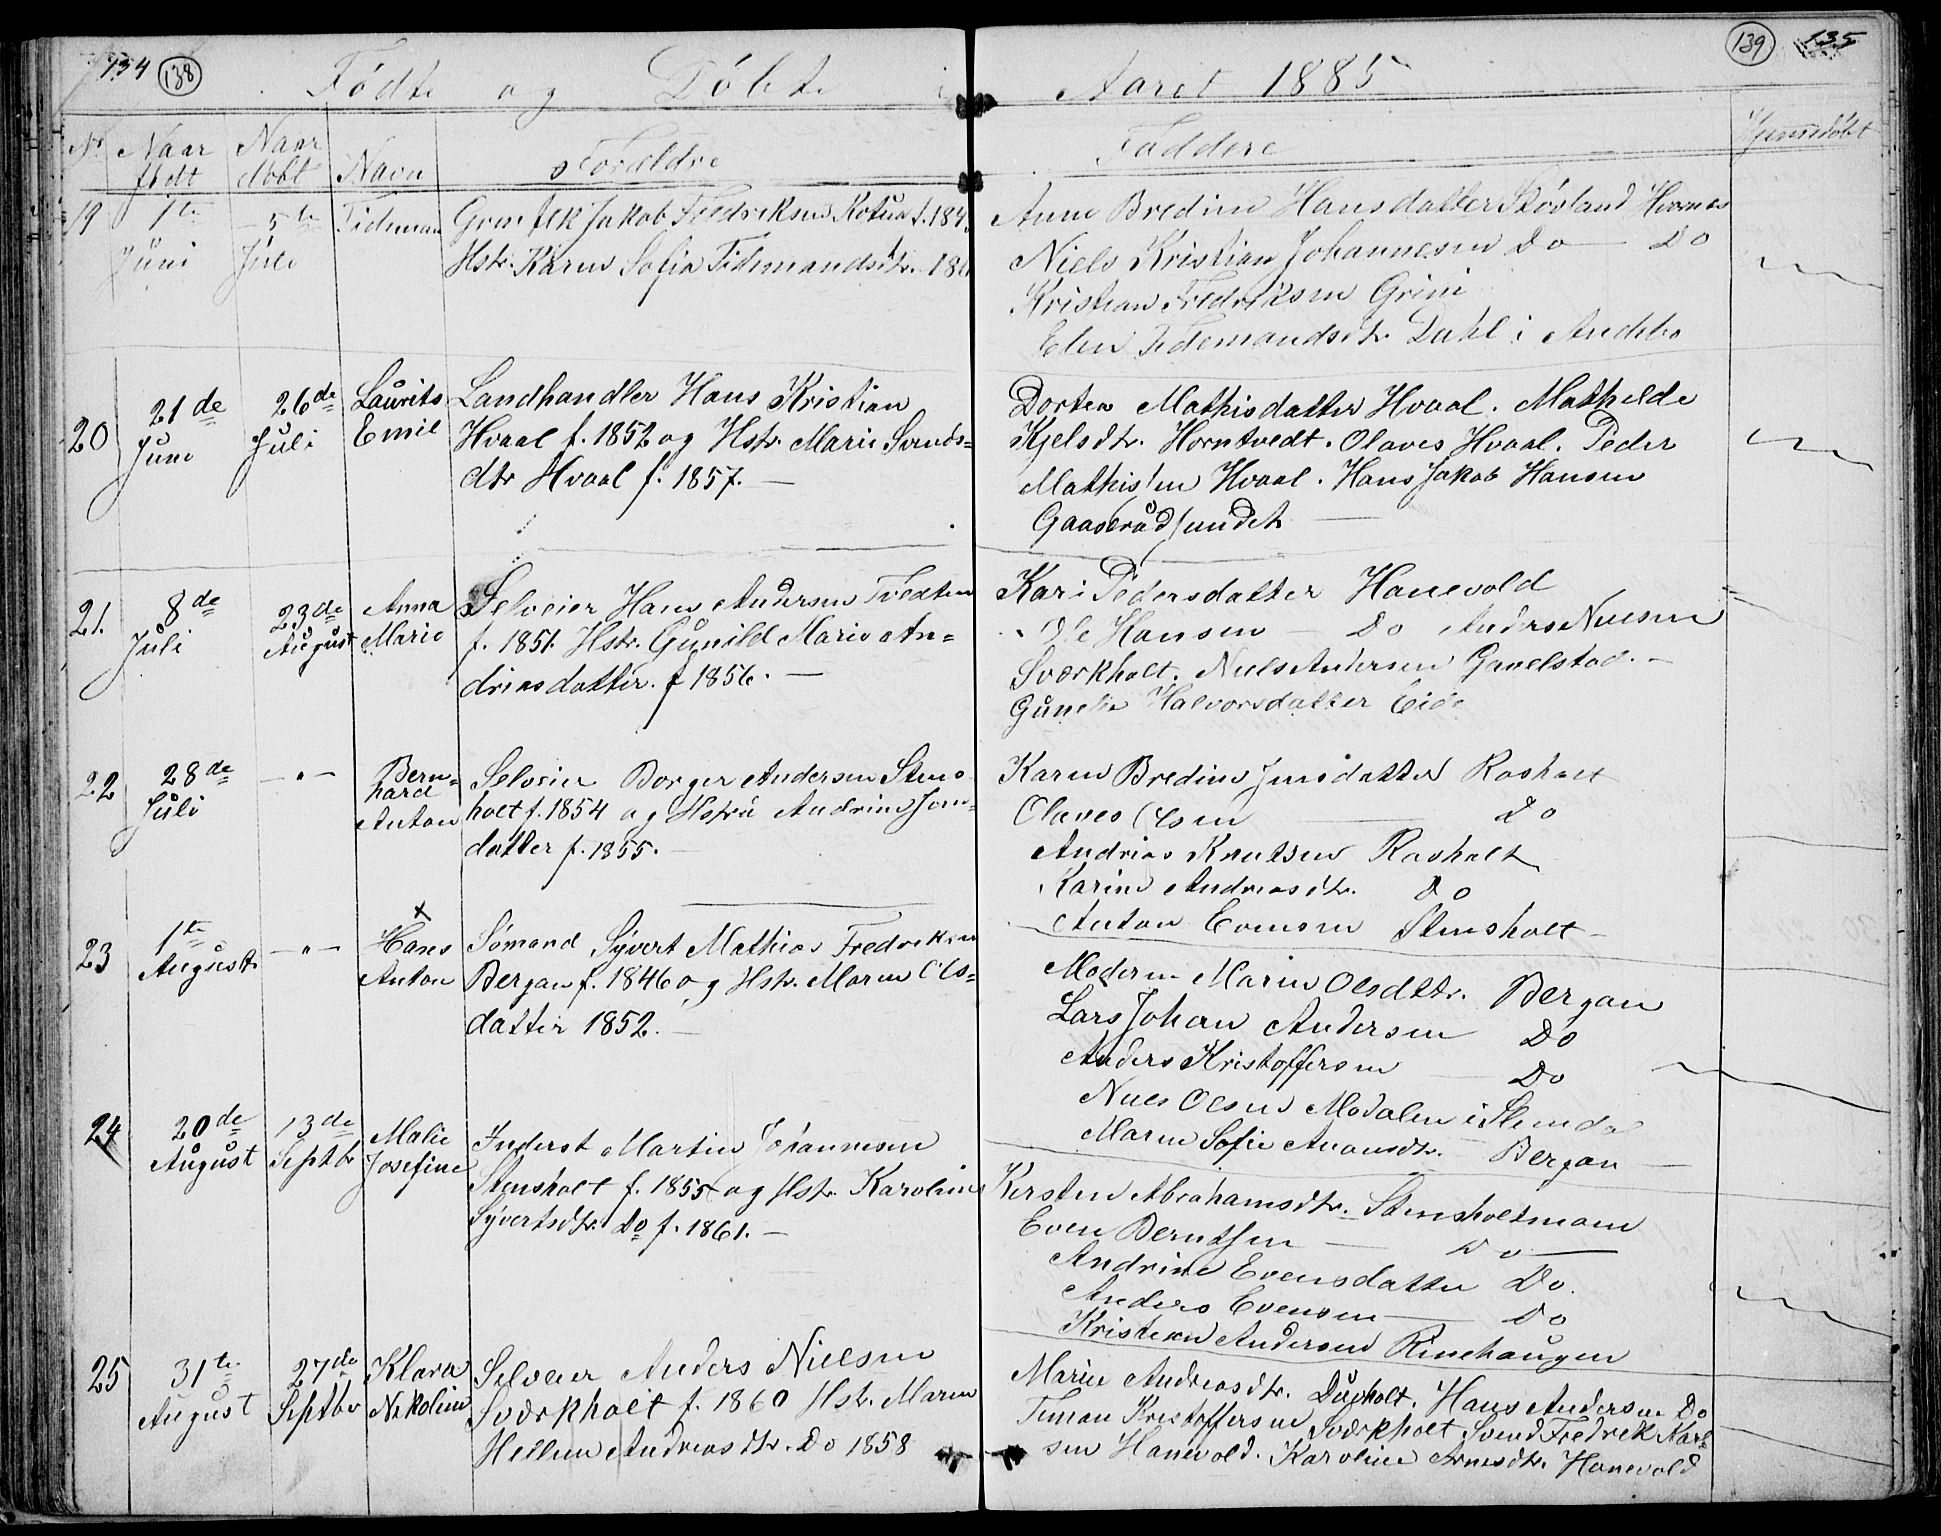 134 138 139 135
Fødte og Døbte i Aaret 1885
No Naar født Naar døbt Navn Forældre Faddere Hjemmedøbt
19 1te Juni 5te Juli Tideman
Jakob Fredriksen f. 184
Hstr. Karen Sofia Tidemandsdtr. 18
Anne Bredine Hansdatter Støvland
Niels Kristian Johannesen Do — Do
Kristian Fredriksen Grini
Elen Tidemandsdtr. Dahl i Andebo
20 21de Juni 26de Juli Laurits Emil
Landhandler Hans Kristian
Hvaal f. 1852 og Hstr. Marie Svends=
dtr Hvaal f. 1857. —
Dortea Mathisdatter Hvaal. Mathilde
Kjelsdtr. Horntvedt. Olaves Hvaal. Peder
Mathissen Hvaal. Hans Jakob Hansen
Gaaserødsundet —
21. 8de Juli 23de August Anna Marie
Selveier Hans Andersen Tvedten
f. 1851. Hstr. Gunild Marie An=
dreasdatter. f 1856. —
Kari Pedersdatter Hanevold
Ole Hansen — Do Anders Nielsen
Sværkholt. Niels Andersen Gavelstad. —
Halvorsdatter Eide
22 28de Juli — " — Bern=hard Anton
Selveier Borger Andersen Stens
holt f. 1854 og Hstru Andrine Jons=
datter f. 1855. —
Karen Bredine Jensdatter Rosholt
Olaves Olsen — Do
Andreas Knutsen Rosholt
Karine Andreasdtr. Do
Anton Evensen Stensholt —
23 1te August — " — Hans Anton
Sømand Syvert Mathias Fredriksen
Bergan f. 1846 og Hstr. Maren Ols=
datter 1852. —
Moderen Maren Olsdttr. Bergan
Lars Johan Andersen Do
Anders Kristoffersen — Do
Niels Olsen Modalen i Slemda
Maren Sofie Bergan —
24 20de August 13de Septbr Malie Josefine
Inderst Martin Johannesen
Stensholt f. 1855 og Hstr. Karoline
Syvertsdtr. Do f. 1861. —
Kirsten Abrahamsdtr. Stensholtmoen
Even Berntsen — Do —
Andrine Evensdatter Do.
Anders Evensen — Do
Kristian Andersen Rinehaugen
25 31te August 27de Septbr Klara Nikoline
Selveier Anders Nielsen
Sværkholt f. 1860 Hstr. Maren
Helene Andreasdtr. Do 1858
Marie Andreasdtr. Dusholt. Hans Andersen Do
Timan Kristoffersen Sværkholt Svend Fredrik Karl=
sen Hanevold. Karoline Arnesdtr. Hanevold